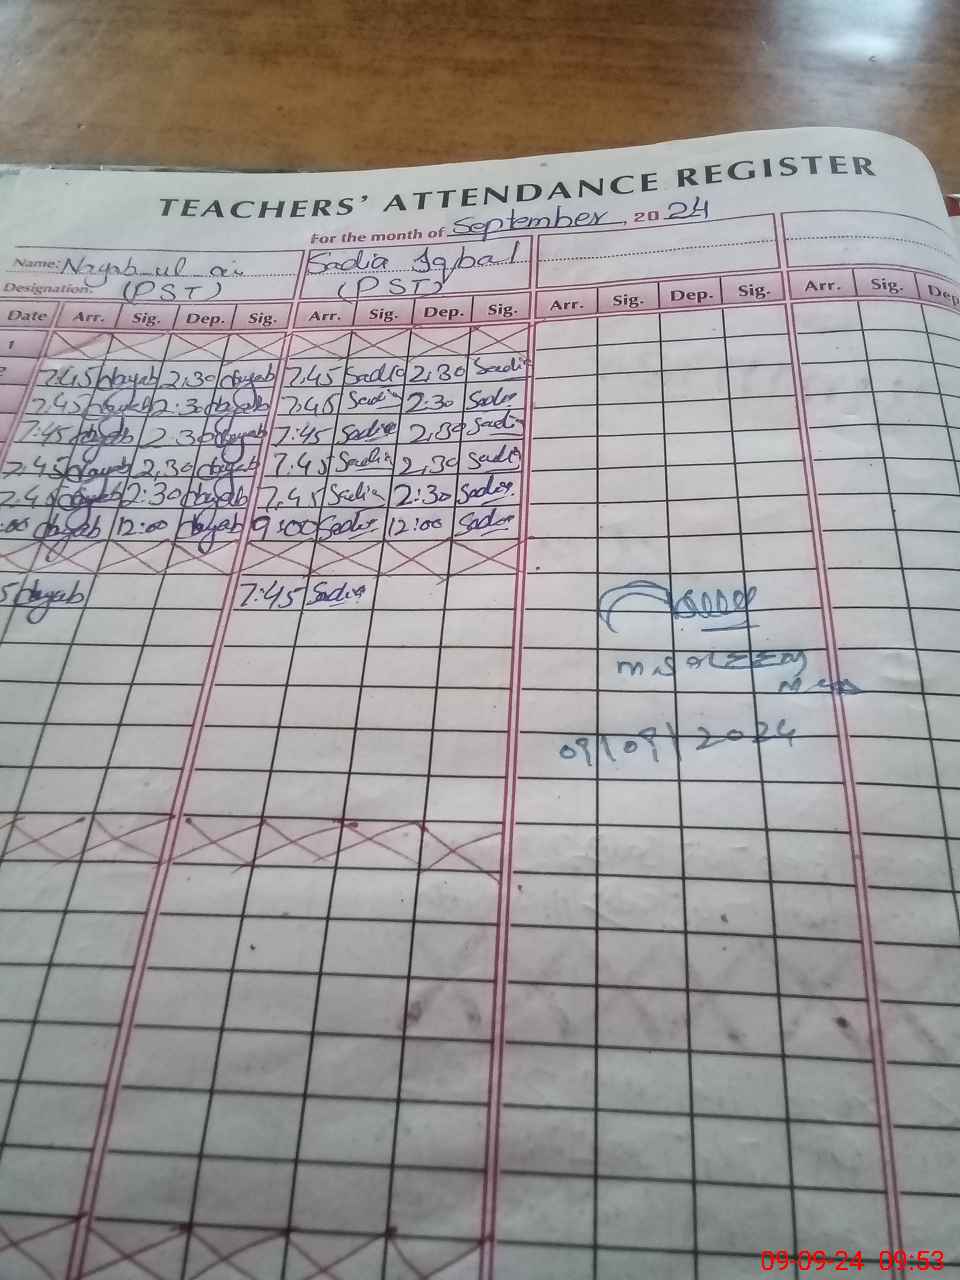 TEACHERS' ATTENDANCE REGISTER
For the month of September 2024
Name: Nayab ul Sadia Iqbal
Designation: (PST) (PST)
Date Arr. Sig. Dep. Sig. Arr. Sig. Dep. Sig. Arr. Sig. Dep. Sig. Arr. Sig. Dep
1
7:45 Nayab 2:30 Nayab 7:45 Sadia 2:30 Sadia
7:45 Nayab 2:30 Nayab 7:45 Sadia 2:30 Sadia
7:45 Nayab 2:30 Nayab 7:45 Sadia 2:30 Sadia
7:45 Nayab 2:30 Nayab 7:45 Sadia 2:30 Sadia
7:45 Nayab 2:30 Nayab 7:45 Sadia 2:30 Sadia
:00 Nayab 12:00 Nayab 9:00 Sadia 12:00 Sadia
5 Nayab 7:45 Sadia
09/09/2024
09-09-24 09:53